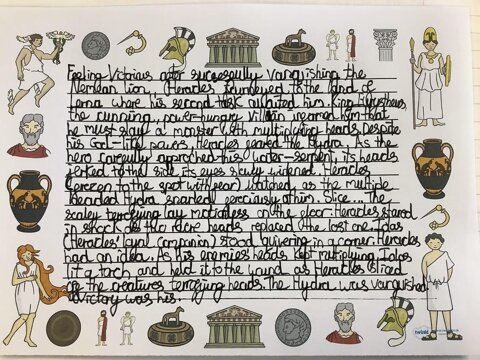 Feeling Victorious after successfully vanquishing the
Nemean lion, Heracles journeyed to the land of
Lerna where his second task awaited him. King Eurystheus
the cunning, power-hungry villain warned him that
he must slay a monster with multiplying heads. Despite
his God-like powers, Heracles feared the Hydra. As the
hero carefully approached this water-serpent, its heads
jerked to the side, its eyes slowly widened. Heracles
(frozen to the spot with fear) watched, as the multiple
headed Hydra snarled ferociously at him. Slice... The
scaley terrifying lay motionless on the floor. Heracles stared
in shock as two more heads replaced the lost one. Iolas
(Heracles' loyal companion) stood quivering in a corner. Heracles
had an idea. As his enemies heads kept multiplying, Iolas
lit a torch and held it to the wound as Heracles sliced
off the creatures terrifying heads. The Hydra was vanquished
victory was his.
twinkl